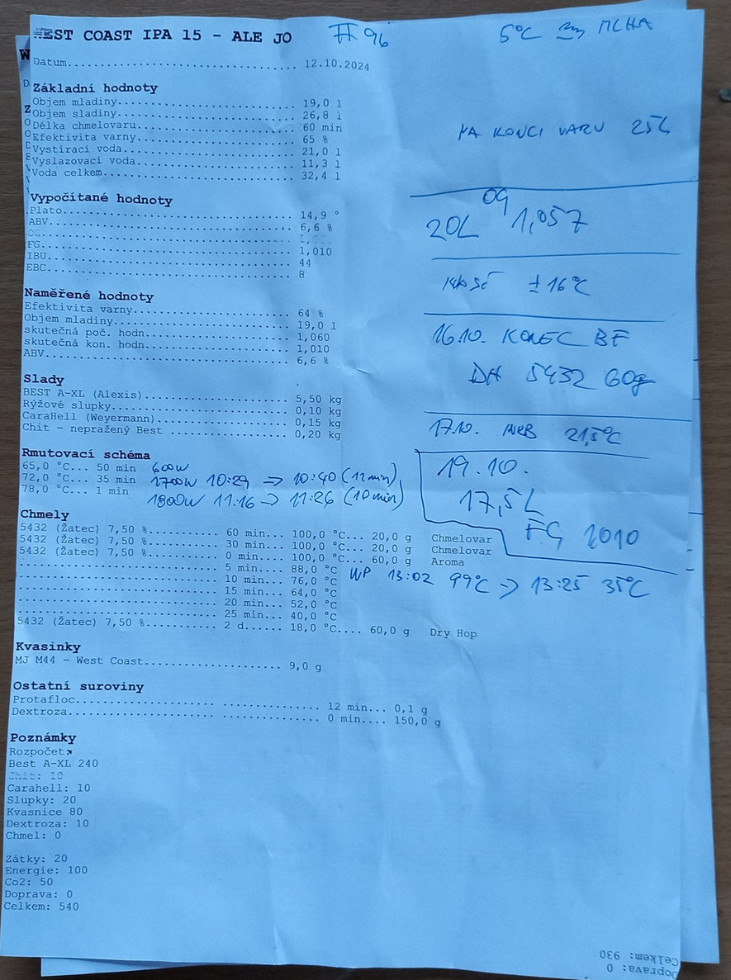 WEST COAST IPA 15 - ALE JO # 96
5°C MLHA
Datum................................ 12.10.2024
Základní hodnoty
Objem mladiny........................ 19,0 l
Objem sladiny........................ 26,8 l
Délka chmelovaru..................... 60 min
Efektivita varny..................... 65 %
Vystírací voda....................... 21,0 l
Vyslazovací voda..................... 11,3 l
Voda celkem.......................... 32,4 l
NA KONCI VARU 25L
Vypočítané hodnoty
Plato................................ 14,9 °
ABV.................................. 6,6 %
FG................................... 1,010
IBU.................................. 44
EBC.................................. 8
OG
20L 1,057
±16°C
Naměřené hodnoty
Efektivita varny..................... 64 %
Objem mladiny........................ 19,0 l
skutečná poč. hodn................... 1,060
skutečná kon. hodn................... 1,010
ABV.................................. 6,6 %
16.10. KONEC BF
DH 5432 60g
Slady
BEST A-XL (Alexis)................... 5,50 kg
Rýžové slupky........................ 0,10 kg
CaraHell (Weyermann)................. 0,15 kg
Chit - nepražený Best................ 0,20 kg
17.10. 21,5°C
Rmutovací schéma
65,0 °C... 50 min 600W
72,0 °C... 35 min 1700W 10:29 → 10:40 (11min)
78,0 °C... 1 min 1800W 11:16 → 11:26 (10min)
19.10.
17,5L
FG 1010
Chmely
5432 (Žatec) 7,50 %.......... 60 min... 100,0 °C... 20,0 g Chmelovar
5432 (Žatec) 7,50 %.......... 30 min... 100,0 °C... 20,0 g Chmelovar
5432 (Žatec) 7,50 %.......... 0 min... 100,0 °C... 60,0 g Aroma
............................. 5 min... 88,0 °C
............................. 10 min... 76,0 °C WP 13:02 99°C → 13:25 35°C
............................. 15 min... 64,0 °C
............................. 20 min... 52,0 °C
............................. 25 min... 40,0 °C
5432 (Žatec) 7,50 %.......... 2 d...... 18,0 °C.... 60,0 g Dry Hop
Kvasinky
MJ M44 - West Coast.................. 9,0 g
Ostatní suroviny
Protafloc............................ 12 min... 0,1 g
Dextroza............................. 0 min.... 150,0 g
Poznámky
Rozpočet
Best A-XL 240
Chit: 10
Carahell: 10
Slupky: 20
Kvasnice 80
Dextroza: 10
Chmel: 0
Zátky: 20
Energie: 100
Co2: 50
Doprava: 0
Celkem: 540
Doprava: 0
Celkem: 930